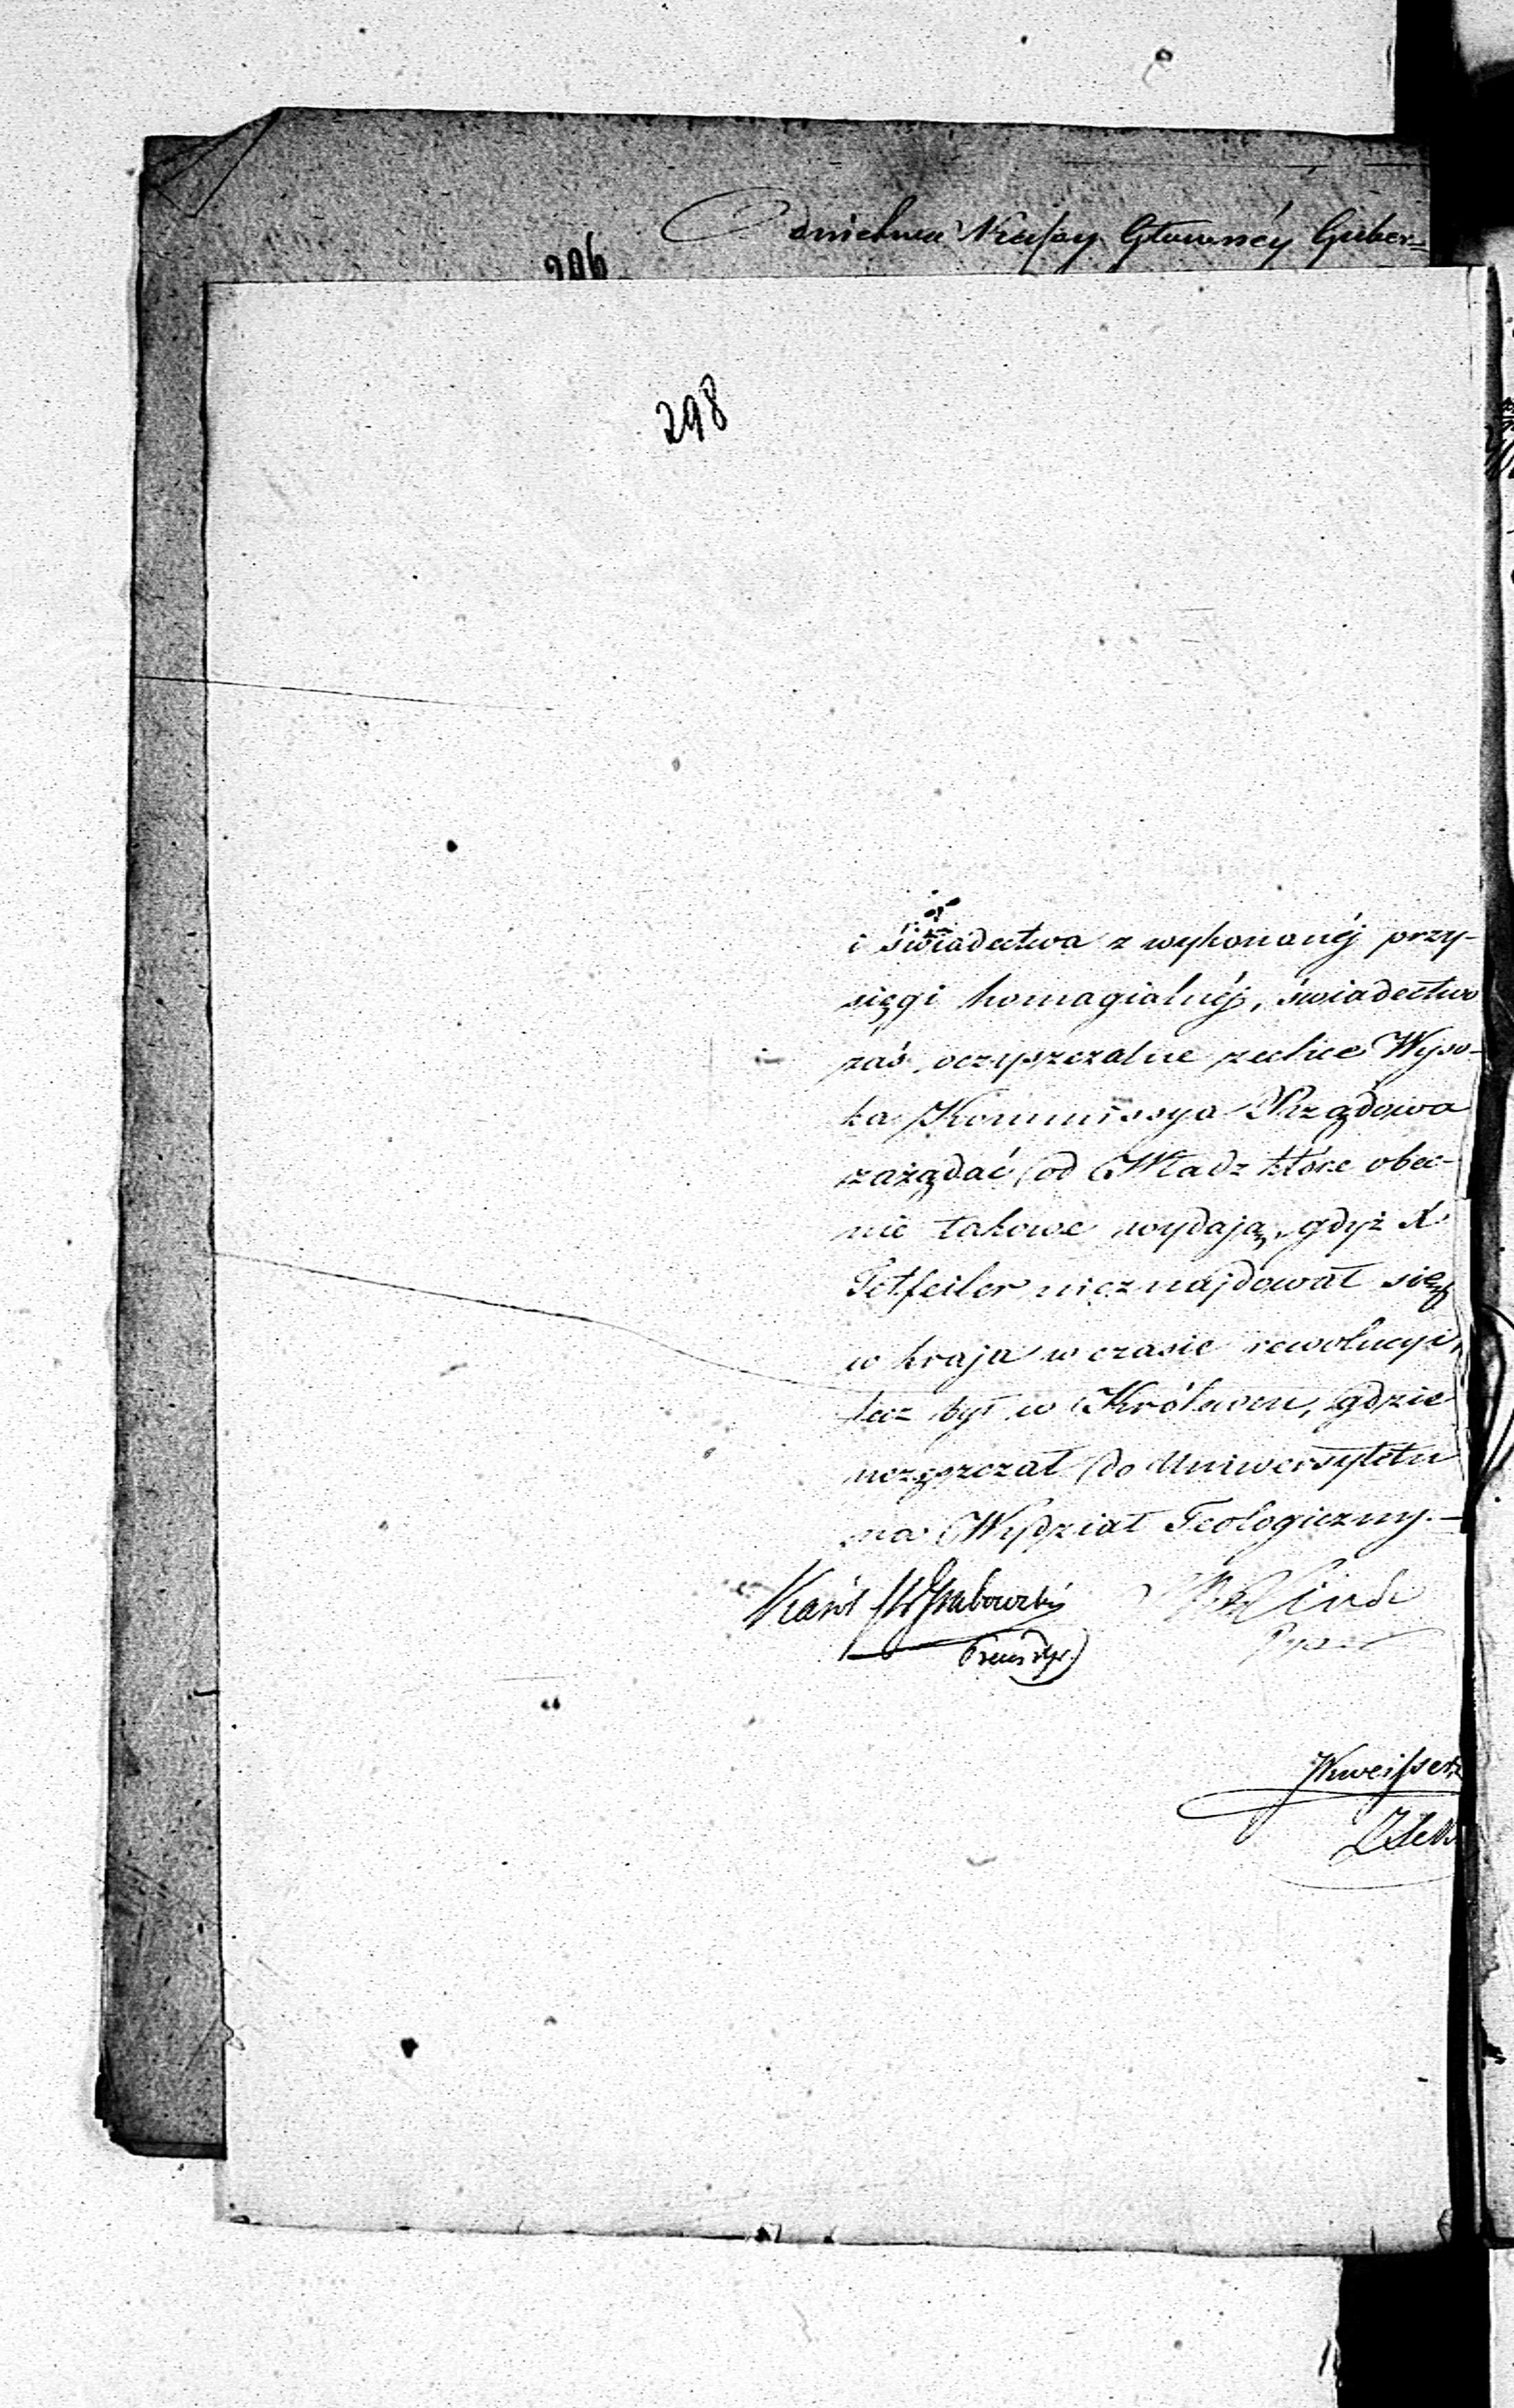 Kassy Głównéj Guber=
296
298
i świadectwa z wykonanéj przy-
sięgi homagialnéj, świadectwo
zaś oczyszczalne zechce Wyso-
ka Kommissya Rządowa
zażądać od Władz które obec-
nie takowe wydają, gdyż X
Tetfeiler nieznajdował się
w kraju w czasie rewolucyi,
lecz był w Królewcu, gdzie
uczęszczał do Uniwersytetu
na Wydział Teologiczny.—
Karól Grabowski